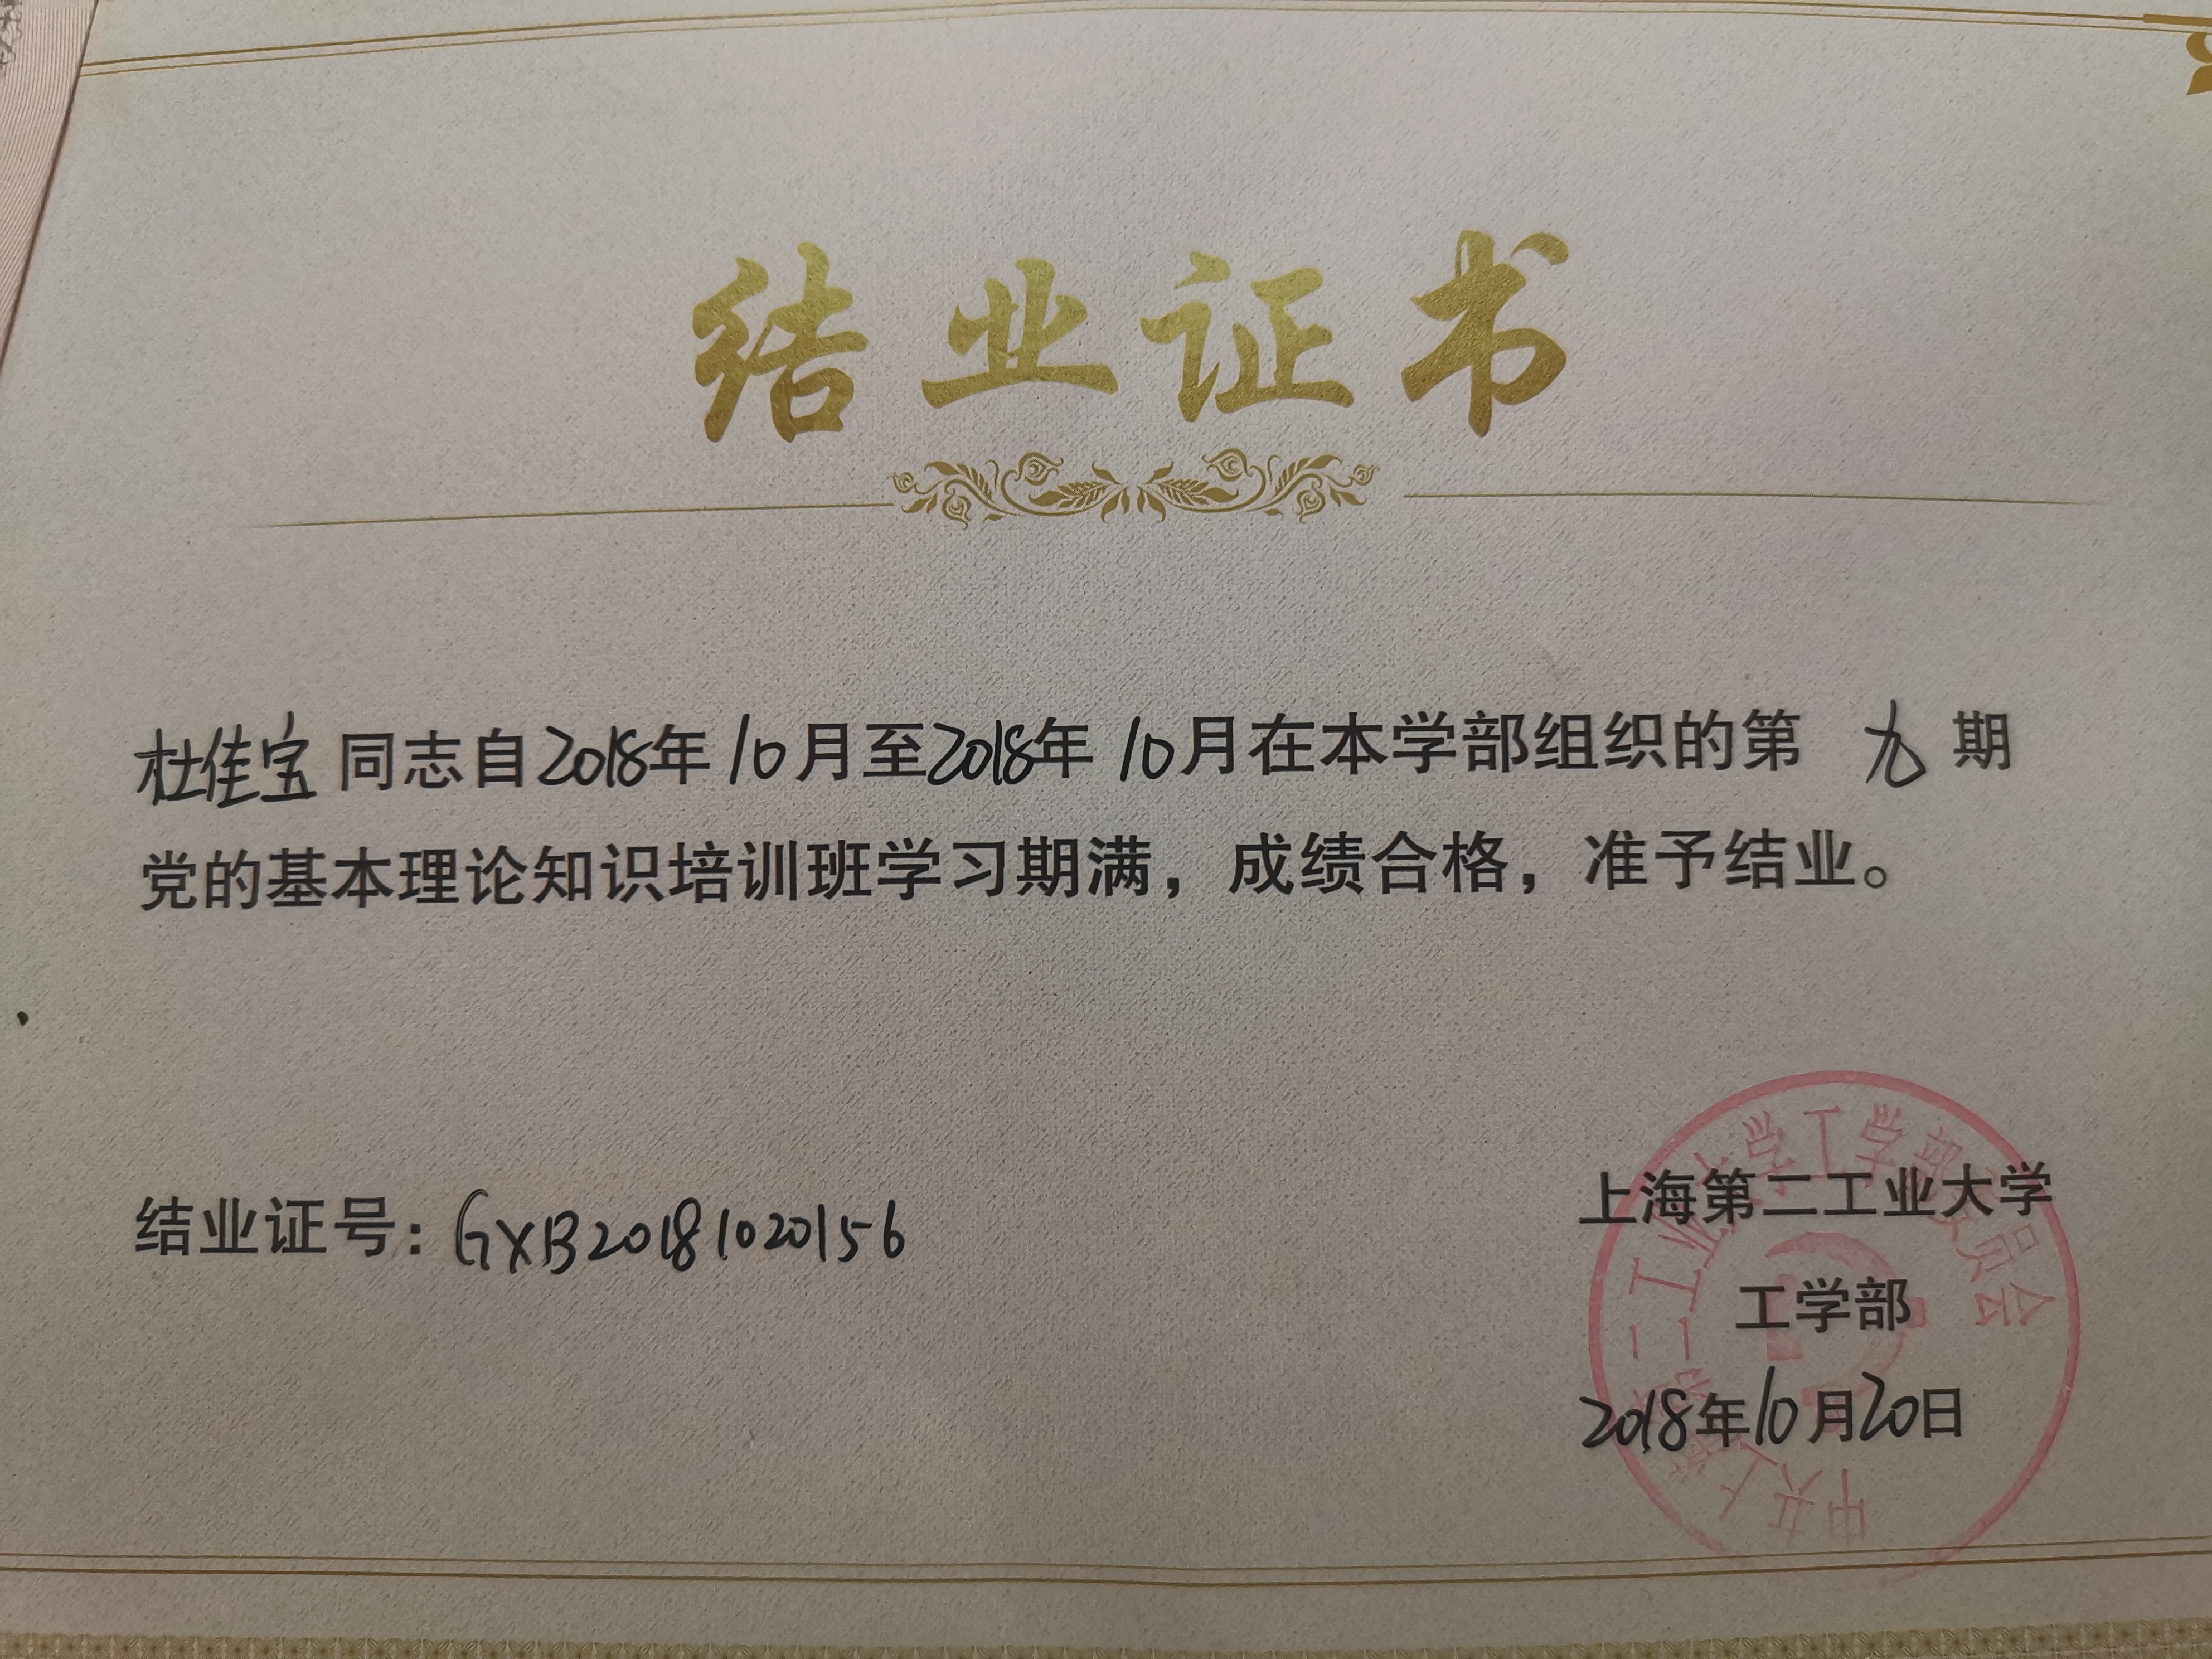 结业证书
杜佳宝同志自2018年10月至2018年10月在本学部组织的第九期
党的基本理论知识培训班学习期满，成绩合格，准予结业。
结业证号：GXB20181020156
上海第二工业大学
工学部
2018年10月20日
中共上海第二工业大学工学部委员会